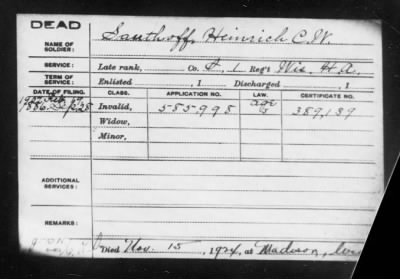 DEAD
NAME OF SOLDIER: Sauthoff, Heinrich C.W.
SERVICE: Late rank, Co. L, 1 Reg't Wis. H.A.
TERM OF SERVICE: Enlisted , 1 Discharged , 1
DATE OF FILING. CLASS. APPLICATION NO. LAW. CERTIFICATE NO.
age
1886. Sep. 28 Invalid, 585998 389,139
Widow,
Minor,
ADDITIONAL SERVICES:
REMARKS:
Died Nov. 15, 1924, at Madison, Wis